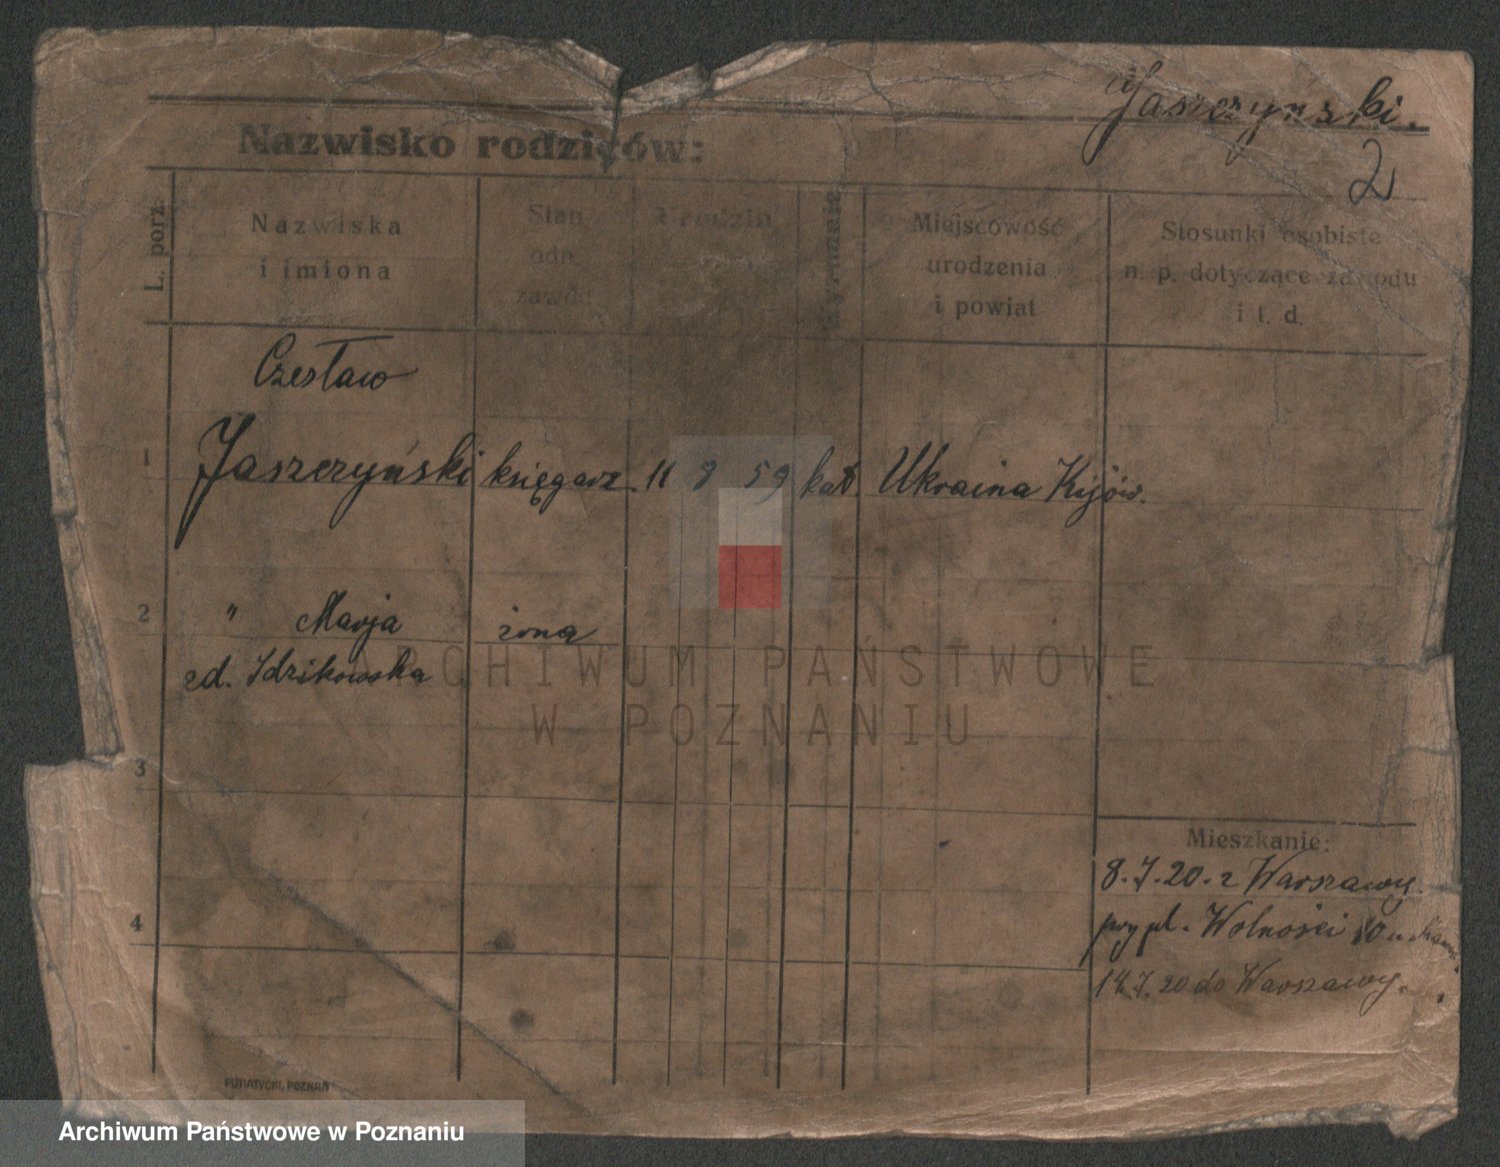 Jaszczyński.
2
Nazwisko rodziców:
L. porz.
Nazwiska
i imiona
Stan
odn.
zawód
Urodzin
Wyznanie
Miejscowość
urodzenia
i powiat
Stosunki osobiste
n. p. dotyczące zawodu
i t. d.
Czesław
1 Jaszczyński księgarz 11 9 59 kat. Ukraina Kijów.
2 " Marja żona
zd. Idzikowska
3
4
Mieszkanie:
8.7.20. z Warszawy
przy pl. Wolności 10 u
14.7.20 do Warszawy.
PUTIATYCKI, POZNAŃ
ARCHIWUM PAŃSTWOWE
W POZNANIU
Archiwum Państwowe w Poznaniu